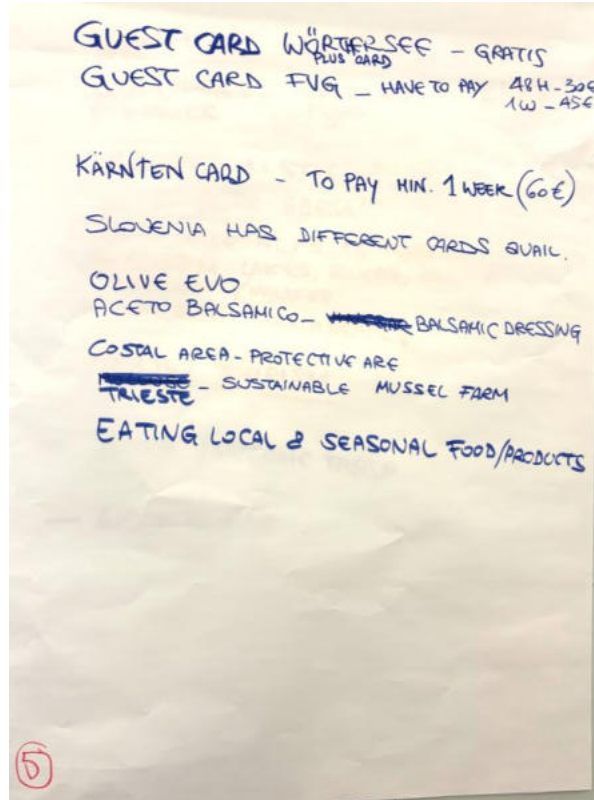 GUEST CARD WÖRTHERSEE – GRATIS
PLUS CARD
GUEST CARD FVG – HAVE TO PAY 48H – 30€
1W – 45€
KÄRNTEN CARD – TO PAY MIN. 1 WEEK (60€)
SLOVENIA HAS DIFFERENT CARDS AVAIL.
OLIVE EVO
ACETO BALSAMICO – BALSAMIC DRESSING
COSTAL AREA – PROTECTIVE ARE
TRIESTE – SUSTAINABLE MUSSEL FARM
EATING LOCAL & SEASONAL FOOD/PRODUCTS
5